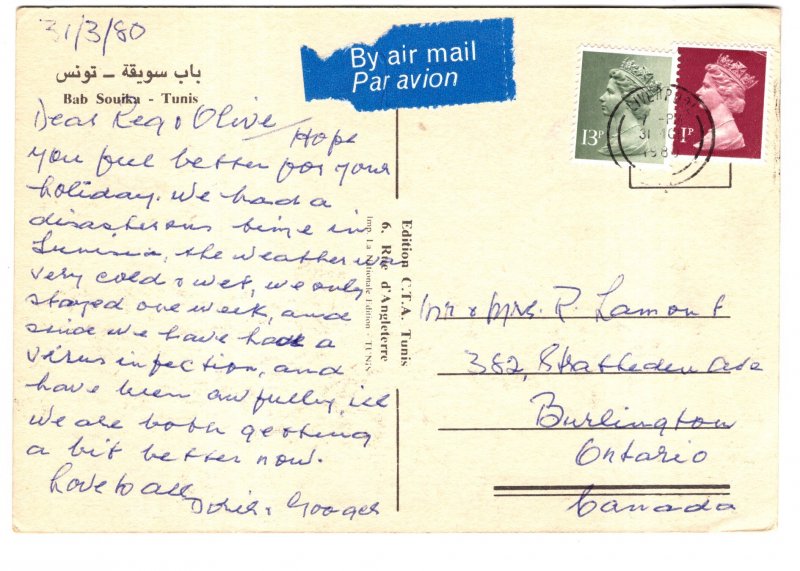 31/3/80
باب سويقة – تونس
Bab Souika - Tunis
Dear Reg & Olive, Hope
you feel better for your
holiday. We had a
disasterous time in
Tunisia, the weather was
very cold & wet, we only
stayed one week, and
since we have had a
virus infection, and
have been awfully ill
we are both getting
a bit better now.
Love to all
Doris &
By air mail
Par avion
13P
1P
LIVERPOOL
Edition C.T.A. Tunis
6, Rue d'Angleterre
Imp. La Nationale Edition - TUNIS
Mr & Mrs. R. Lamont
382, Stratheden Ave
Burlington
Ontario
Canada